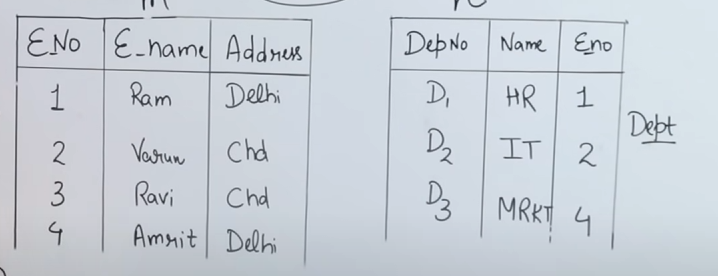 E No E_name Address
1 Ram Delhi
2 Varun Chd
3 Ravi Chd
4 Amrit Delhi
DepNo Name Eno
D1 HR 1
D2 IT 2
D3 MRKT 4
Dept